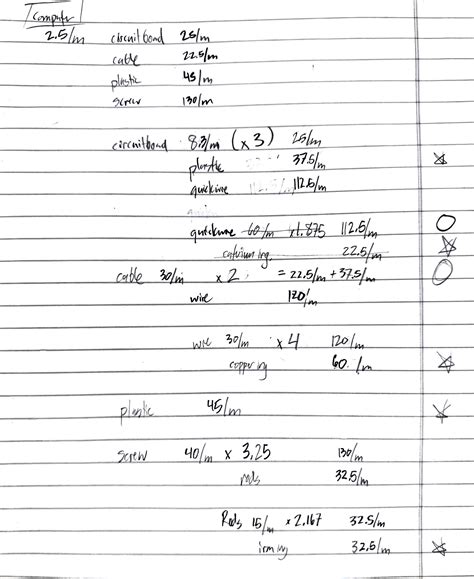 Computer
2.5/m circuitboard 25/m
cable 22.5/m
plastic 45/m
screw 130/m
circuitboard 8.3/m (x3) 25/m
plastic 37.5/m
quickwire 112.5/m
quickwire 60/m x1.875 112.5/m
caterium ing. 22.5/m
cable 30/m x 2 = 22.5/m + 37.5/m
wire 120/m
wire 30/m x 4 120/m
copper ing 60 /m
plastic 45/m
screw 40/m x 3.25 130/m
rods 32.5/m
Rods 15/m x 2.167 32.5/m
iron ing 32.5/m